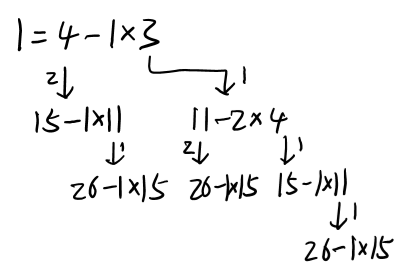 1 = 4 - 1 × 3
2 1
15 - 1×11 11 - 2 × 4
1 2 1
26 - 1×15 26 - 1×15 15 - 1×11
1
26 - 1×15